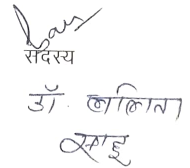 सदस्य
डॉ. ललिता
साहू